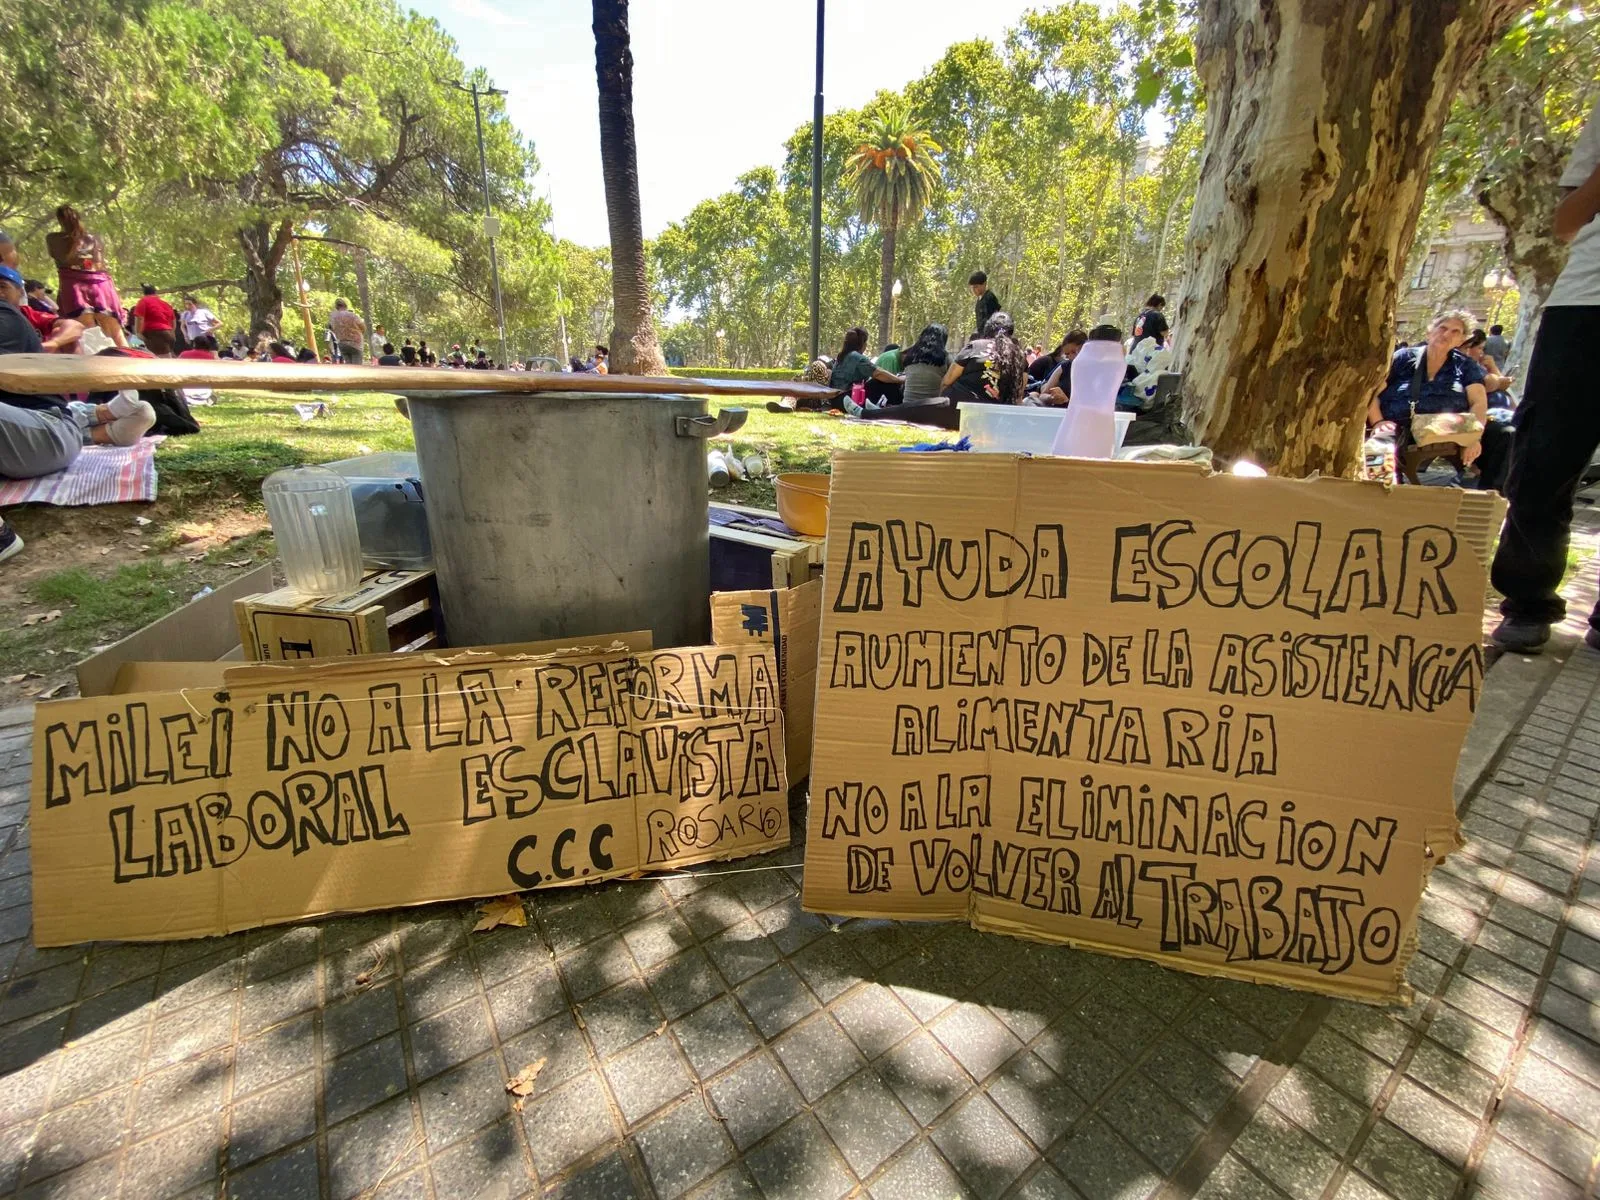 MILEI NO A LA REFORMA
LABORAL ESCLAVISTA
C.C.C ROSARIO
AYUDA ESCOLAR
AUMENTO DE LA ASISTENCIA
ALIMENTARIA
NO A LA ELIMINACION
DE VOLVER AL TRABAJO